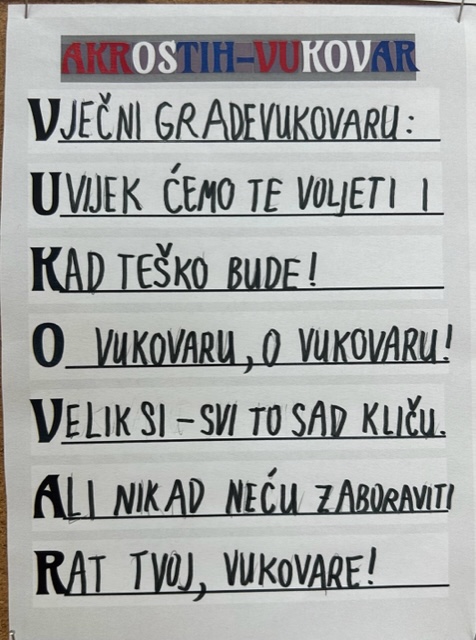 AKROSTIH-VUKOVAR
VJEČNI GRADEVUKOVARU:
UVIJEK ĆEMO TE VOLJETI I
KAD TEŠKO BUDE!
O VUKOVARU, O VUKOVARU!
VELIK SI - SVI TO SAD KLIČU.
ALI NIKAD NEĆU ZABORAVITI
RAT TVOJ, VUKOVARE!